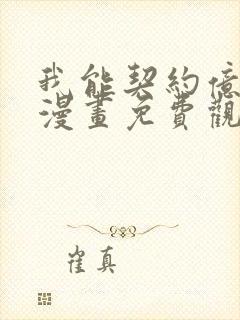 我能契約億
漫畫免費觀
崔真